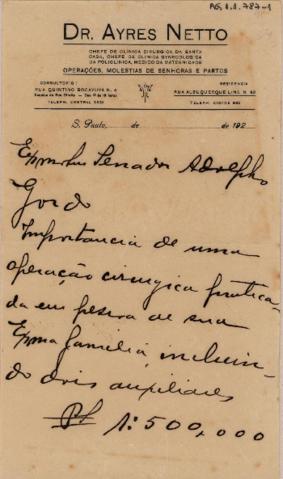 AG.1.1.787-1
DR. AYRES NETTO
CHEFE DE CLINICA CIRURGICA DA SANTA
CASA, CHEFE DE CLINICA GYNECOLOGICA
DA POLICLINICA, MEDICO DA MATERNIDADE
OPERAÇÕES, MOLESTIAS DE SENHORAS E PARTOS
CONSULTORIO:
RUA QUINTINO BOCAYUVA N. 4
TELEPH. CENTRAL
RESIDENCIA
RUA ALBUQUERQUE LINS, N.
TELEPH. CIDADE
S. Paulo, de de 192
Exmo Snr Senador Adolpho
Gordo
Importancia de uma
operação cirurgica pratica-
da em pessoa de sua
Exma familia, incluin-
do dois auxiliares
Rs 1:500,000